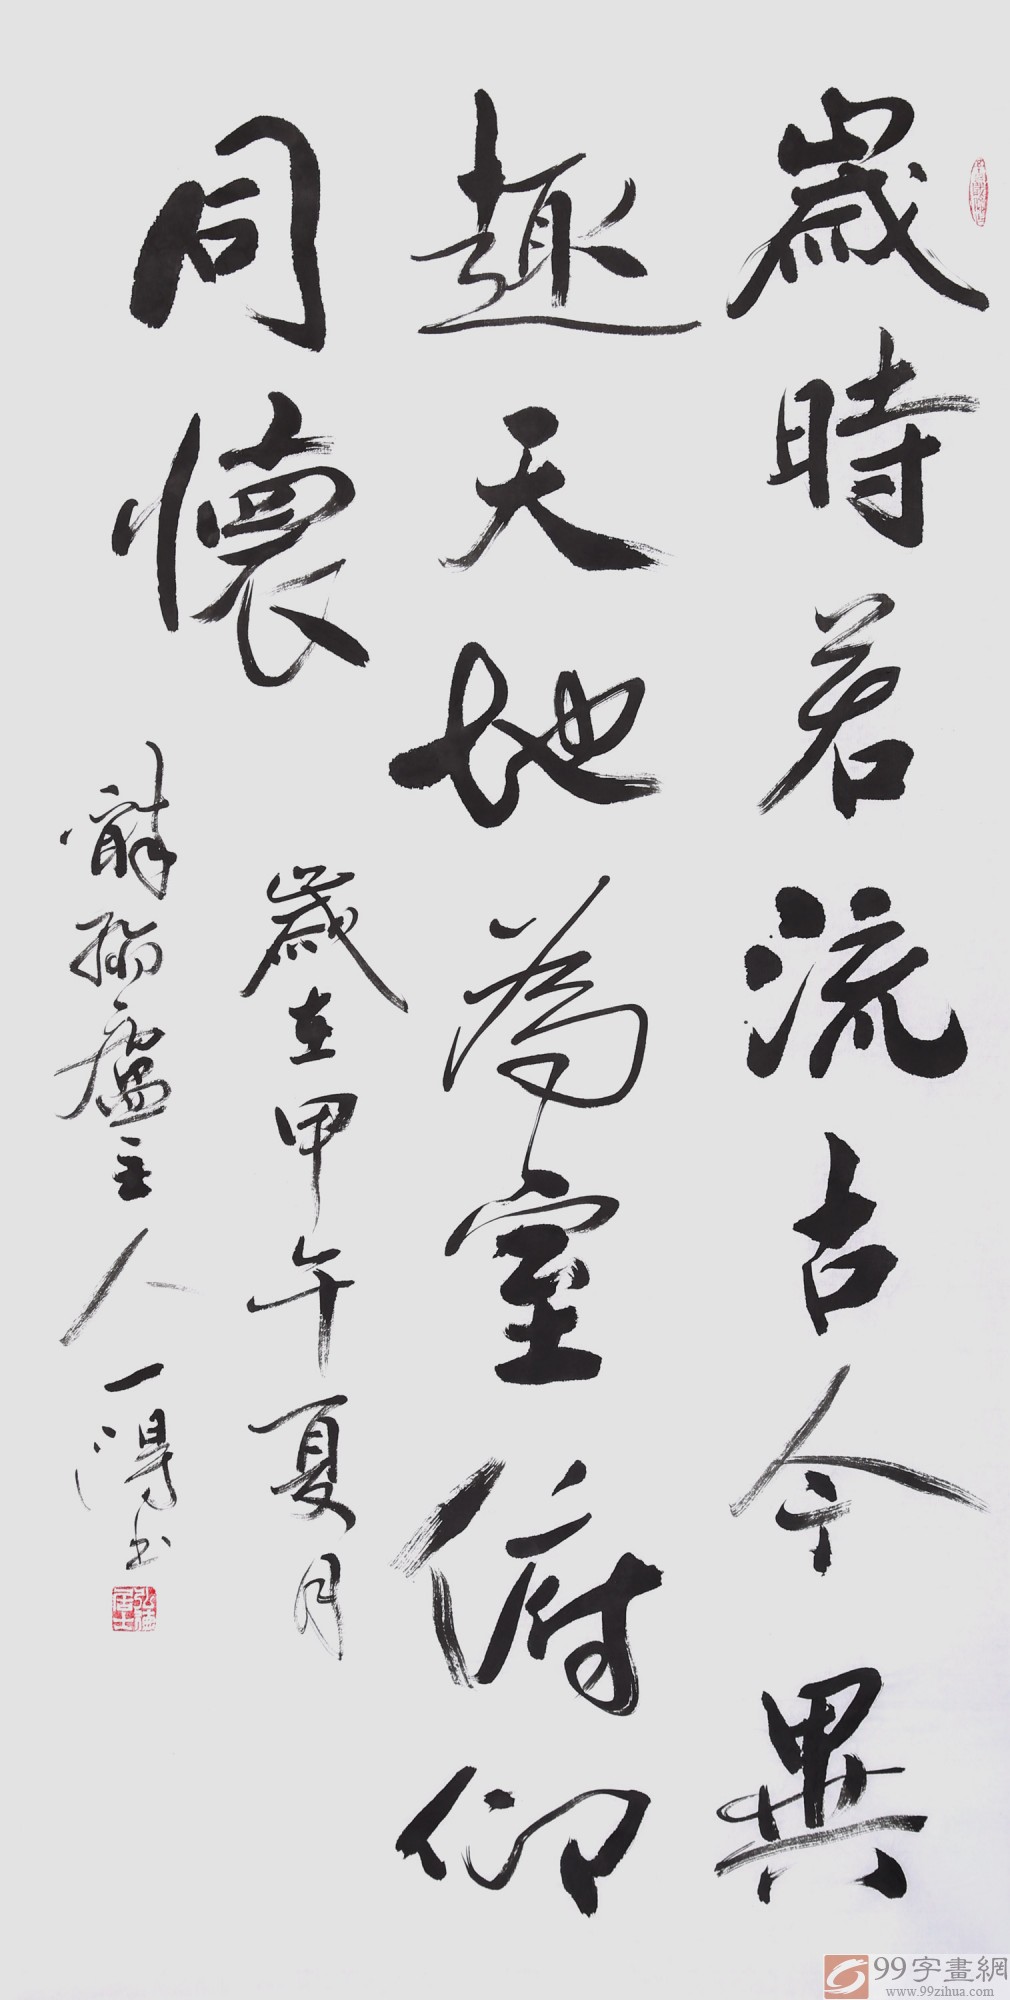 歲時若流古今異
趣天地為室俯仰
同懷
歲在甲午夏月
廬主人一得書
弘德居士
99字畫網
www.99zihua.com